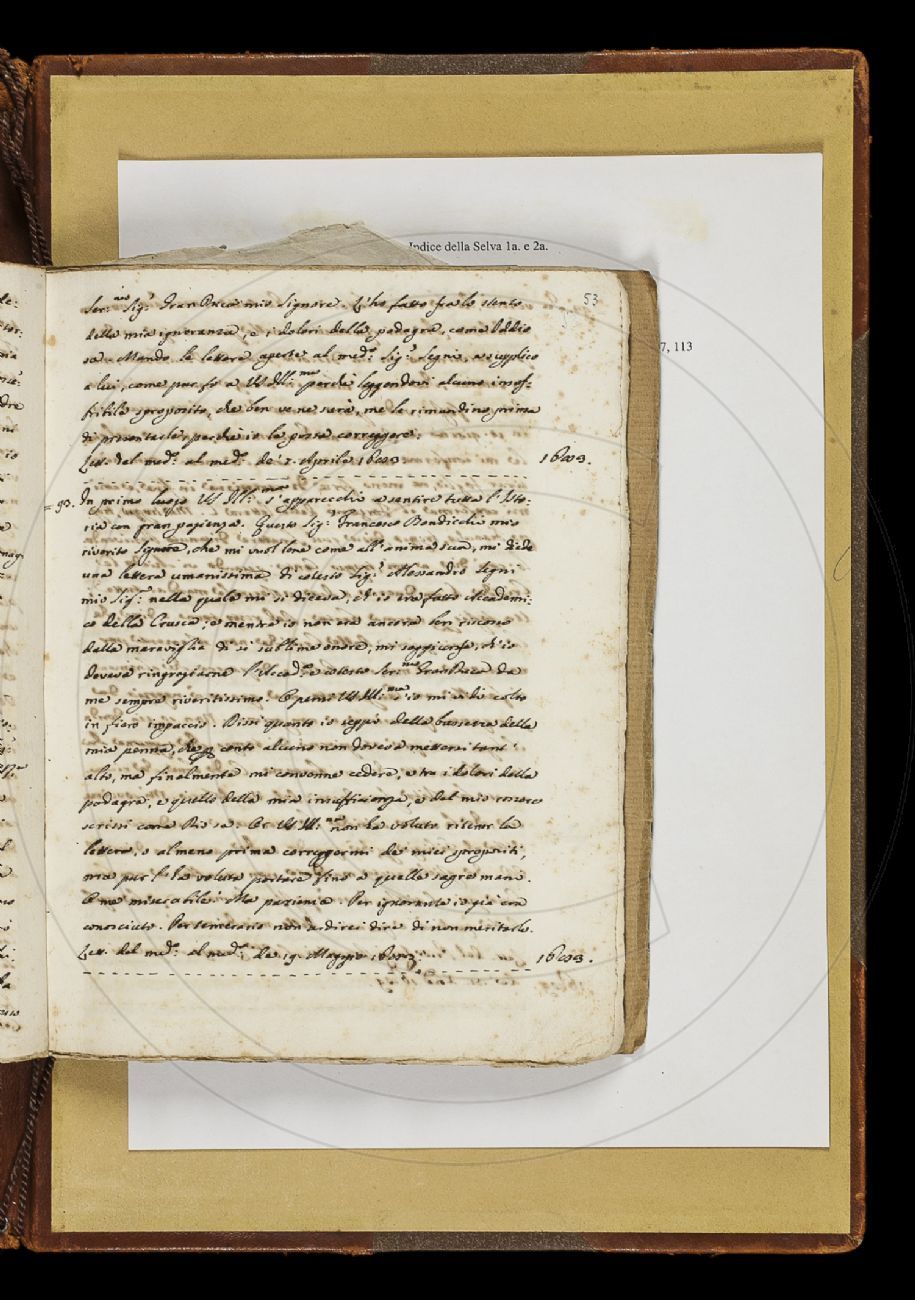 Indice della Selva 1a. e 2a.
7, 113
53
Ser.mo Sig.r Gran Duca mio Signore. L'ho fatto fra lo stento
della mia ignoranza, e i dolori della podagra, come Iddio
sa. Mando le lettere aperte al med.o Sig.r Segni, e supplico
a lui, come pur fo a VS Ill:ma perchè leggendovi alcuno insof-
fribile sproposito, che ben ve ne sarà, me le rimandino prima
di presentarle, perchè io le possa correggere.
Lett. del med.o al med.o de' Aprile
= 93. In primo luogo VS Ill:ma s'apparecchi a sentire tutta l'Isto-
ria con gran pazienza. Questo Sig.r Francesco Bondicchi mio
riverito Signore, che mi vuol bene come all'anima sua, mi diede
una lettera umanissima di cotesto Sig.r Alessandro Segni
mio Sig.r nella quale mi si diceva, ch'io era fatto Accademi-
co della Crusca; e mentre io non era ancora ben riscosso
dalla maraviglia di sì sublime onore, mi soggiunse, ch'io
dovessi ringraziarne l'Accad.a e cotesto Ser.mo Gran Duca da
me sempre riveritissimo. E pensi VS Ill:ma s'io mi vidi colto
in fiero impaccio. Dissi quanto io seppi della bassezza della
mia penna, che per conto alcuno non doveva mettersi tant'
alto, ma finalmente mi convenne cedere, e tra i dolori della
podagra, e quello della mia insufficienza, e del mio rossore
scrissi come Dio sa. Or VS Ill:ma non ha voluto ritener la
lettera, o almeno prima correggermi de' miei spropositi,
ma pur l'ha voluta portare fino a quelle sagre mani.
O me miserabile! Ma pazienza. Per ignorante io già era
conosciuto. Per temerario non ardirei dire di non meritarlo.
Lett. del med.o al med.o de 19. Maggio